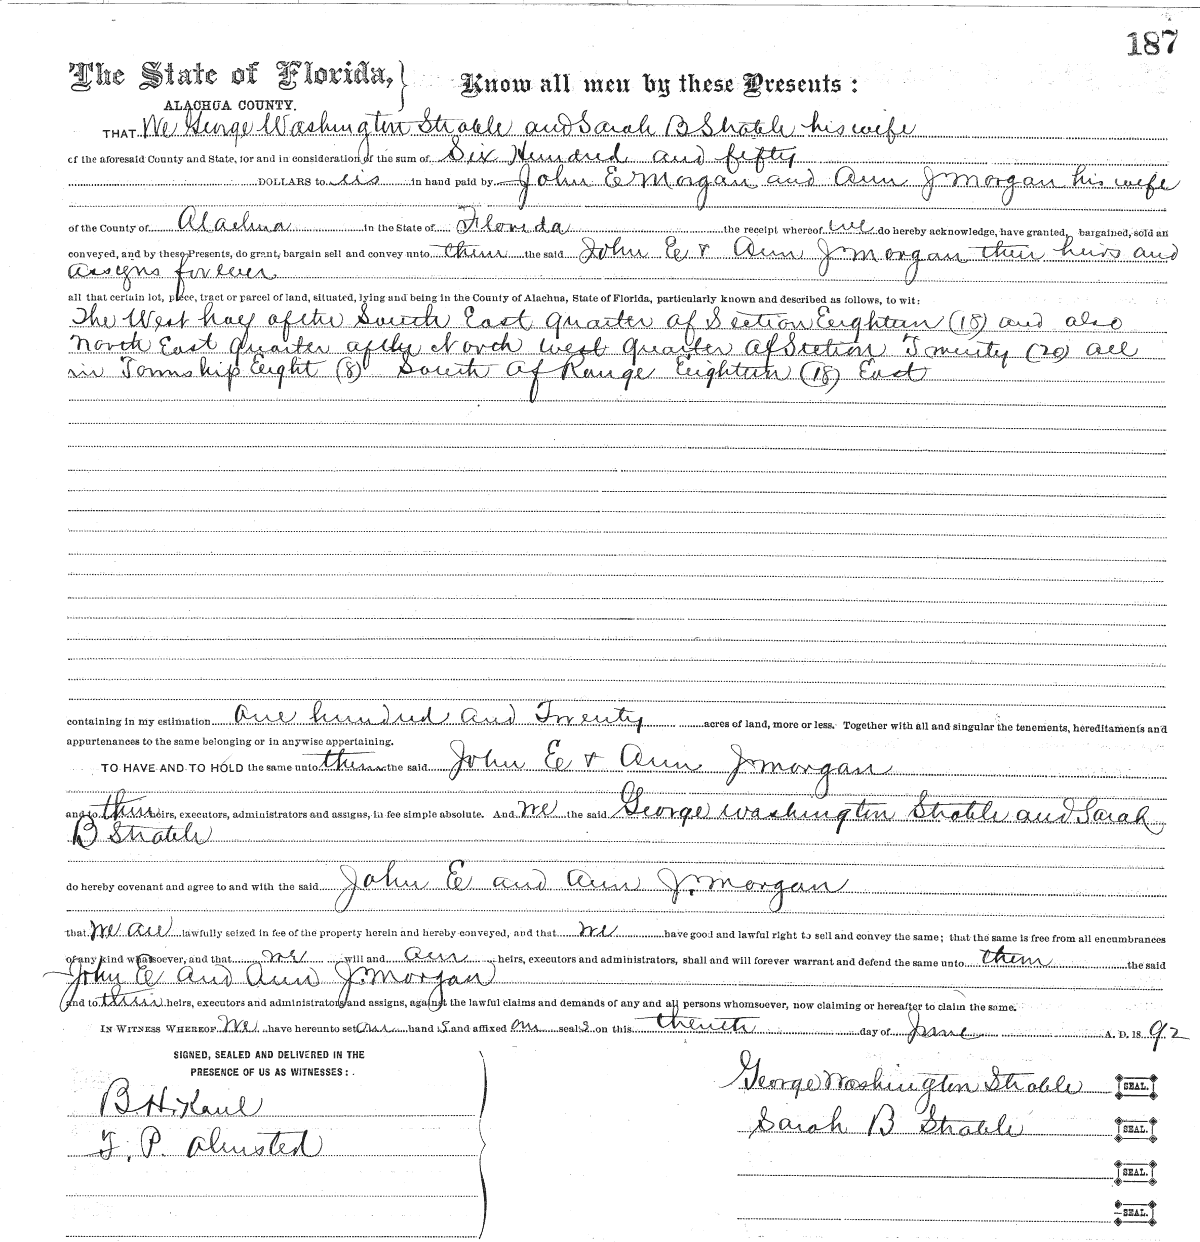 187
The State of Florida, Know all men by these Presents:
ALACHUA COUNTY.
THAT We George Washington Strable and Sarah B Strable his wife
of the aforesaid County and State, for and in consideration of the sum of Six Hundred and fifty
DOLLARS to us in hand paid by John E Morgan and Ann J Morgan his wife
of the County of Alachua in the State of Florida the receipt whereof we do hereby acknowledge, have granted, bargained, sold an
conveyed, and by these Presents, do grant, bargain sell and convey unto them the said John E & Ann J Morgan their heirs and
assigns forever
all that certain lot, piece, tract or parcel of land, situated, lying and being in the County of Alachua, State of Florida, particularly known and described as follows, to wit:
The West half of the South East quarter of Section Eighteen (18) and also
North East quarter of the North West quarter of Section Twenty (20) all
in Township Eight (8) South of Range Eighteen (18) East
containing in my estimation One hundred and Twenty acres of land, more or less. Together with all and singular the tenements, hereditaments and
appurtenances to the same belonging or in anywise appertaining.
TO HAVE AND TO HOLD the same unto them the said John E & Ann J Morgan
and to their heirs, executors, administrators and assigns, in fee simple absolute. And we the said George Washington Strable and Sarah
B Strable
do hereby covenant and agree to and with the said John E and Ann J. Morgan
that we are lawfully seized in fee of the property herein and hereby conveyed, and that we have good and lawful right to sell and convey the same; that the same is free from all encumbrances
of any kind whatsoever, and that we will and our heirs, executors and administrators, shall and will forever warrant and defend the same unto them the said
John E and Ann J. Morgan
and to their heirs, executors and administrators and assigns, against the lawful claims and demands of any and all persons whomsoever, now claiming or hereafter to claim the same.
IN WITNESS WHEREOF We have hereunto set our hand s and affixed our seal s on this day of June A. D. 18 92
SIGNED, SEALED AND DELIVERED IN THE
PRESENCE OF US AS WITNESSES:
George Washington Strable SEAL.
B H. Kaul
Sarah B Strable SEAL.
F. P. Olmsted
SEAL.
SEAL.